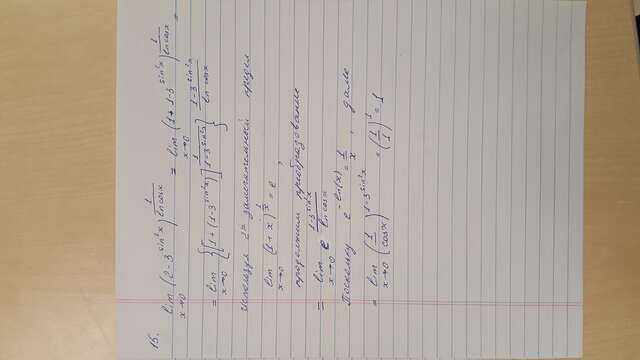 15.
lim x→0 (2-3^{sin²x})^{1/ln cosx} = lim x→0 (1+1-3^{sin²x})^{1/ln cosx} =
= lim x→0 {[1+(1-3^{sin²x})]^{1/1-3^{sin²x}}}^{1-3^{sin²x}/ln cosx}
Используя 2ой замечательный предел
lim x→0 (1+x)^{1/x} = e ,
продолжим преобразование
= lim x→0 e^{1-3^{sin²x}/ln cosx}
Поскольку e^{-ln(x)} = 1/x , далее
= lim x→0 (1/cosx)^{1-3^{sin²x}} = (1/1)^1 = 1